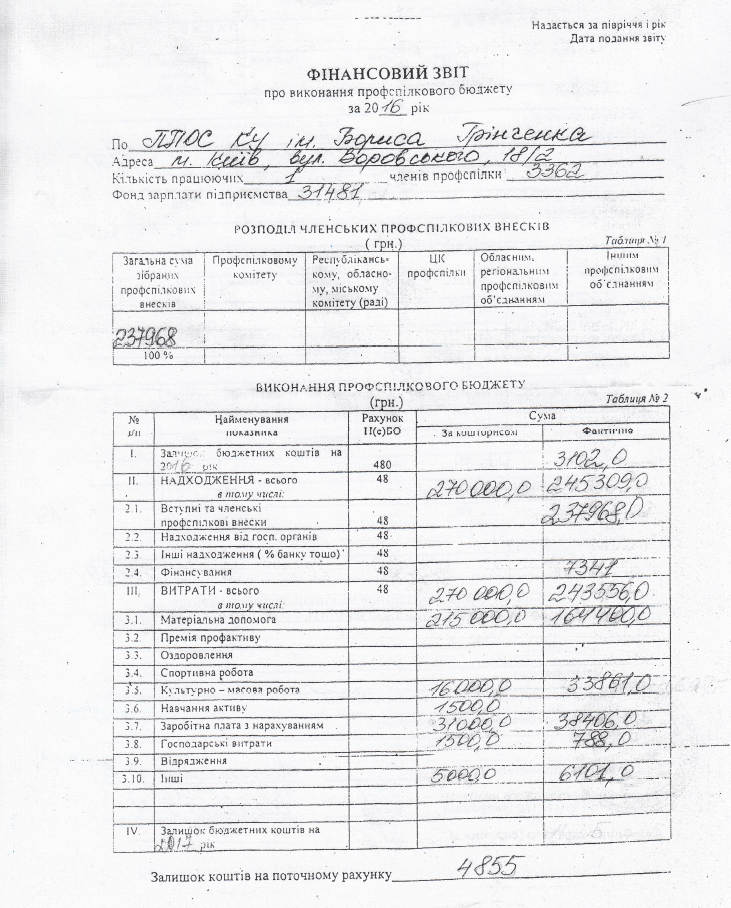 Надається за півріччя і рік
Дата подання звіту
ФІНАНСОВИЙ ЗВІТ
про виконання профспілкового бюджету
за 2016 рік
По ППОС КУ ім. Бориса Грінченка
Адреса м. Київ, вул. Воровського, 18/2
Кількість працюючих 1 членів профспілки 3362
Фонд зарплати підприємства 31481
РОЗПОДІЛ ЧЛЕНСЬКИХ ПРОФСПІЛКОВИХ ВНЕСКІВ
( грн.) Таблиця № 1
Загальна сума зібраних профспілкових внесків | Профспілковому комітету | Республікансь-кому, обласно-му, міському комітету (раді) | ЦК профспілки | Обласним, регіональним профспілковим об'єднанням | Іншим профспілковим об'єднанням
237968
100 %
ВИКОНАННЯ ПРОФСПІЛКОВОГО БЮДЖЕТУ
(грн.) Таблиця № 2
№ з/п | Найменування показника | Рахунок П(с)БО | Сума
За кошторисом | Фактично
I. Залишок бюджетних коштів на 2016 рік 480 3102,0
II. НАДХОДЖЕННЯ - всього 48 270000,0 245309,0
в тому числі:
2.1. Вступні та членські
профспілкові внески 48 237968,0
2.2. Надходження від госп. органів 48
2.3. Інші надходження ( % банку тощо) 48
2.4. Фінансування 48 7341
III. ВИТРАТИ - всього 48 270 000,0 243556,0
в тому числі:
3.1. Матеріальна допомога 215 000,0 164400,0
3.2. Премія профактиву
3.3. Оздоровлення
3.4. Спортивна робота
3.5. Культурно – масова робота 16000,0 33861,0
3.6. Навчання активу 1500,0
3.7. Заробітна плата з нарахуванням 31000,0 38406,0
3.8. Господарські витрати 1500,0 788,0
3.9. Відрядження
3.10. Інші 5000,0 6101,0
IV. Залишок бюджетних коштів на
2017 рік
Залишок коштів на поточному рахунку 4855